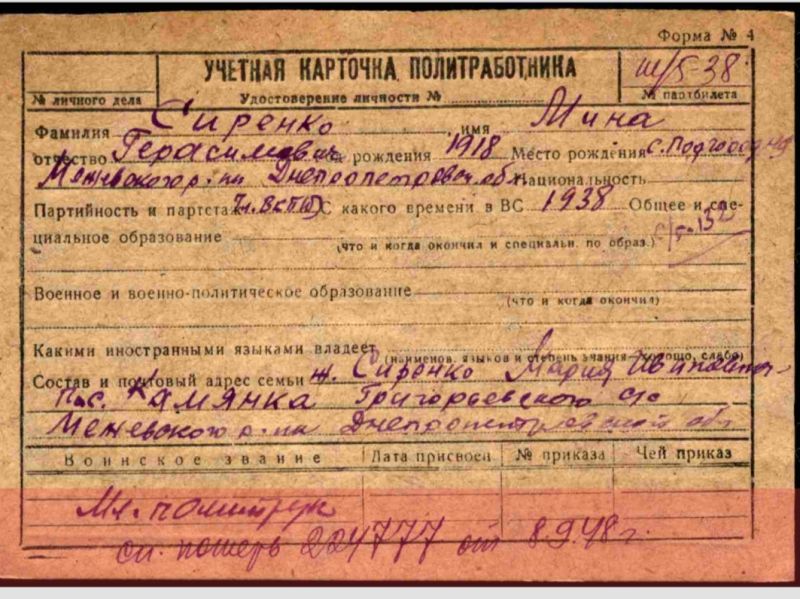 Форма № 4
УЧЕТНАЯ КАРТОЧКА ПОЛИТРАБОТНИКА
Ш/5-38
№ личного дела Удостоверение личности № № партбилета
Фамилия Сиренко имя Мина
отчество Герасимович рождения 1918 Место рождения с. Подгородн
Межевского р-на Днепропетровск. обл. Национальность
Партийность и партстаж чл. ВКП(б) С какого времени в ВС 1938 Общее и спе-
циальное образование
(что и когда окончил и специальн. по образ.)
Военное и военно-политическое образование
(что и когда окончил)
Какими иностранными языками владеет
(наименов. языков и степень знания—хорошо, слабо)
Состав и почтовый адрес семьи ж. Сиренко Мария
пос. Камянка Григорьевского с/с
Межевского р-на Днепропетровской обл
Воинское звание Дата присвоен № приказа Чей приказ
Мл. политрук
сп. потерь 224777 от 8.9.48 г.